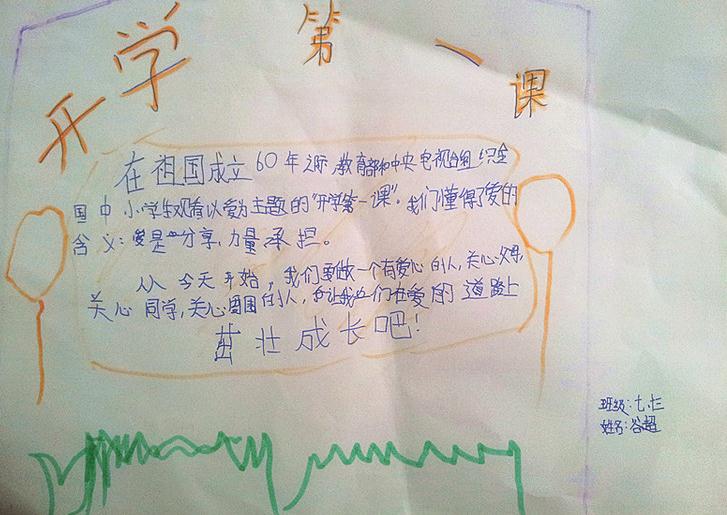 开学第一课
在祖国成立60年之际,教育部和中央电视台组织全
国中小学生观看以爱为主题的"开学第一课"。我们懂得了爱的
含义:爱是分享,力量承担。
从今天开始,我们要做一个有爱心的人,关心父母,
关心同学,关心周围的人,让我们在爱的道路上
茁壮成长吧!
班级:七.七
姓名:谷超